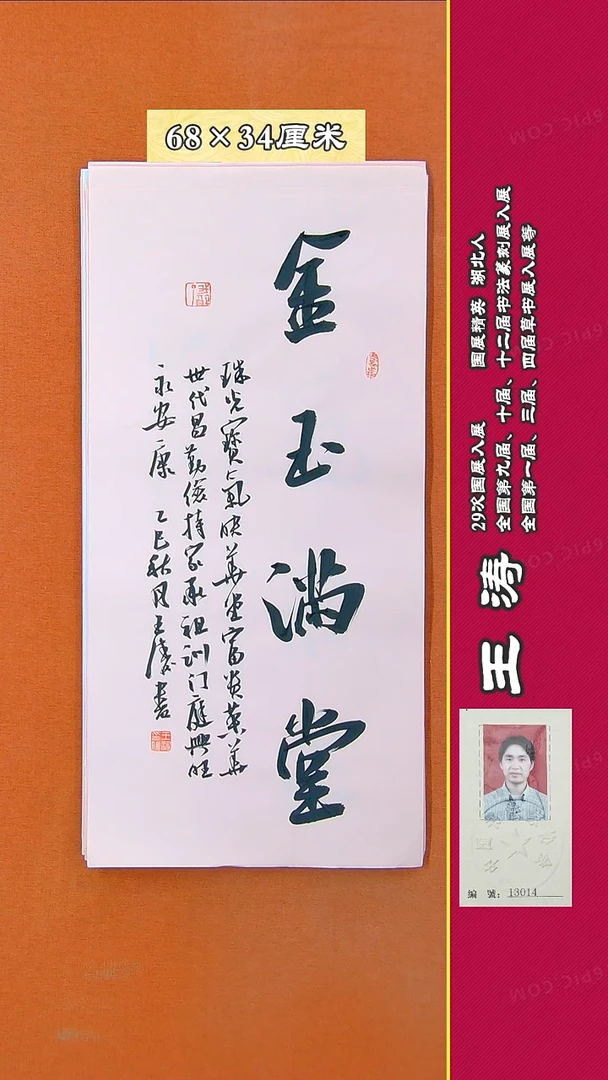 68×34厘米
金玉满堂
珠光寶气映華堂富贵荣華
世代昌勤俭持家承祖训门庭興旺
永安康 乙巳秋月王涛書
29次国展入展 国展精英 湖北人
全国第九届、十届、十二届书法篆刻展入展
全国第一届、三届、四届草书展入展等
王涛
編 號: 13014